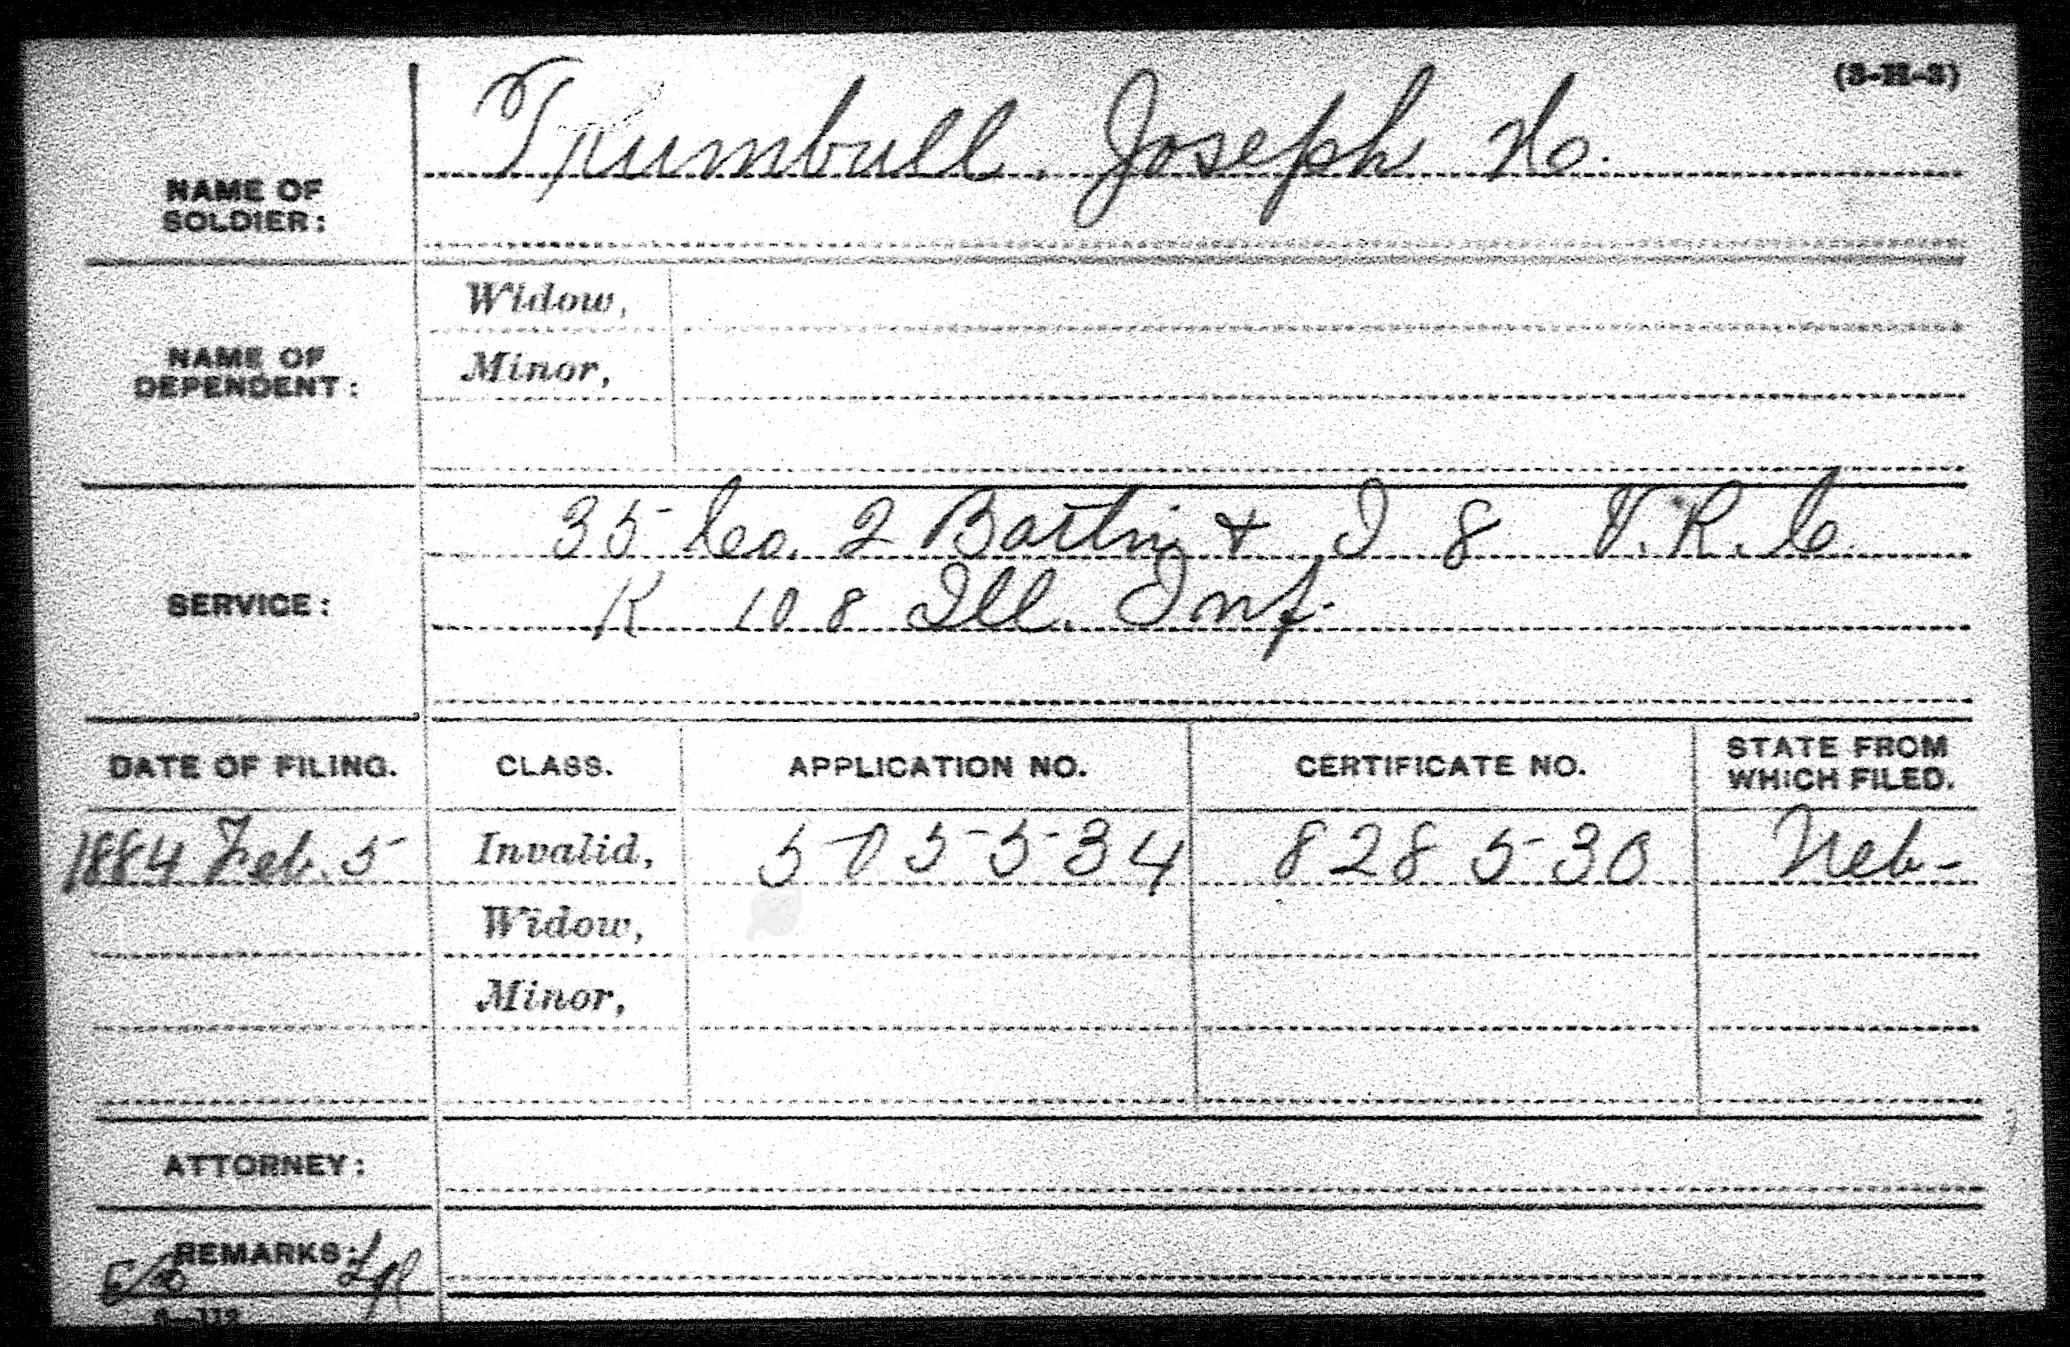 (3-H-3)
NAME OF SOLDIER: Trumbull, Joseph No.
NAME OF DEPENDENT:
Widow,
Minor,
SERVICE:
35 Co. 2 Battn & I 8 V.R.C.
K 108 Ill. Inf.
DATE OF FILING. CLASS. APPLICATION NO. CERTIFICATE NO. STATE FROM WHICH FILED.
1884 Feb. 5 Invalid, 505534 828530 Neb-
Widow,
Minor,
ATTORNEY:
REMARKS: